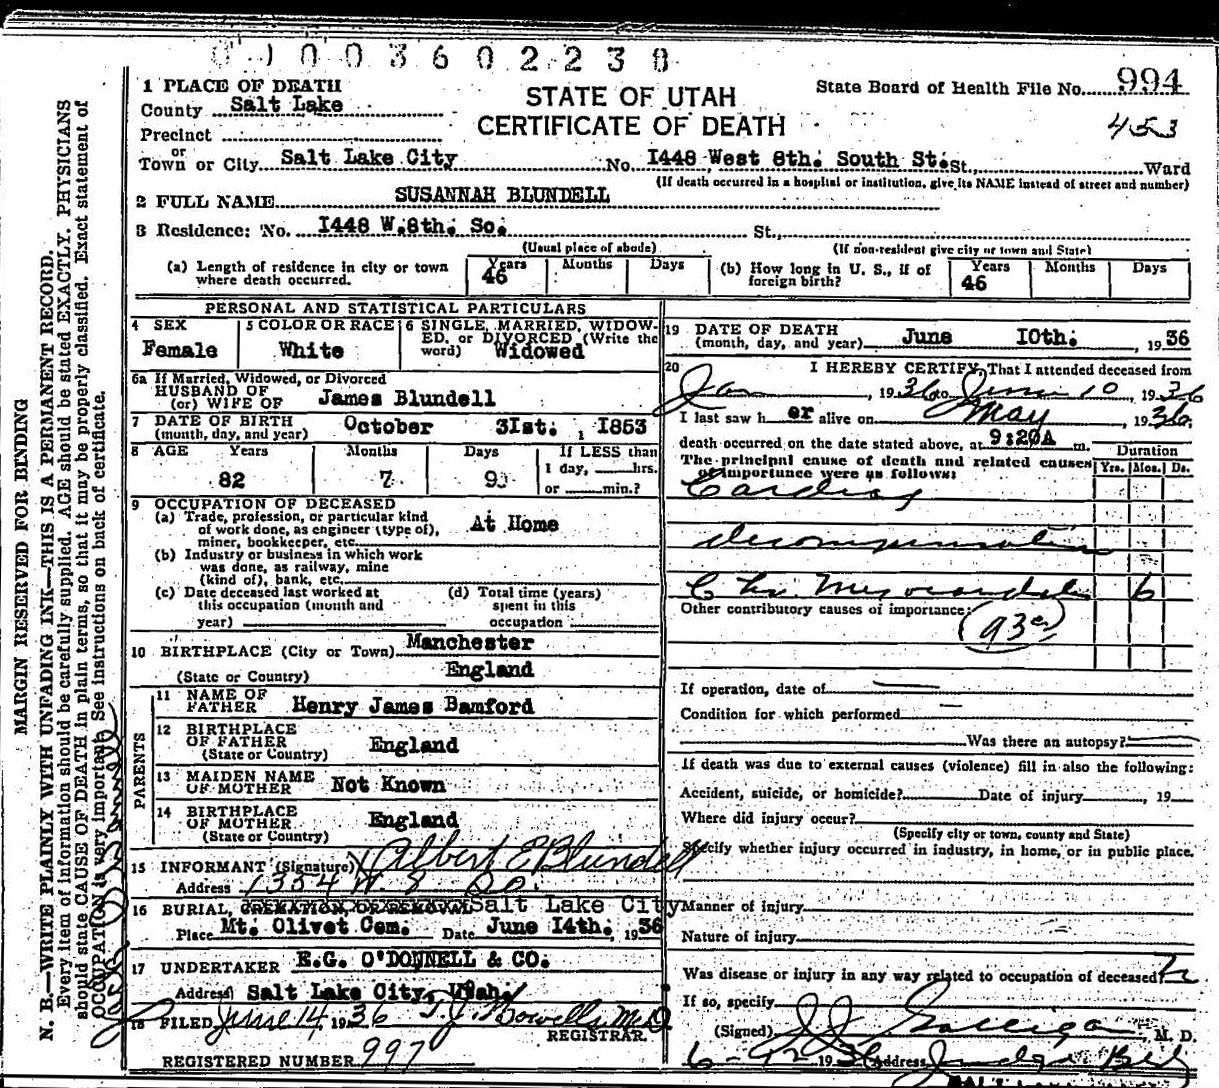 0 1 0 0 3 6 0 2 2 3 8
1 PLACE OF DEATH
State Board of Health File No. 994
County Salt Lake
STATE OF UTAH
Precinct
CERTIFICATE OF DEATH
453
or
Town or City Salt Lake City No. I448 West 8th. South St. St., Ward
(If death occurred in a hospital or institution, give its NAME instead of street and number)
2 FULL NAME SUSANNAH BLUNDELL
3 Residence: No. I448 W.8th. So. St.,
(Usual place of abode) (If non-resident give city or town and State)
(a) Length of residence in city or town where death occurred. Years 46 Months Days
(b) How long in U. S., if of foreign birth? Years 46 Months Days
PERSONAL AND STATISTICAL PARTICULARS
4 SEX Female
5 COLOR OR RACE White
6 SINGLE, MARRIED, WIDOW-
ED, or DIVORCED (Write the
word) Widowed
6a If Married, Widowed, or Divorced
HUSBAND OF
(or) WIFE OF James Blundell
7 DATE OF BIRTH
(month, day, and year) October 3Ist. , I853
8 AGE Years 82 Months 7 Days 9
If LESS than
1 day, hrs.
or min.?
9 OCCUPATION OF DECEASED
(a) Trade, profession, or particular kind
of work done, as engineer (type of),
miner, bookkeeper, etc. At Home
(b) Industry or business in which work
was done, as railway, mine
(kind of), bank, etc.
(c) Date deceased last worked at
this occupation (month and
year)
(d) Total time (years)
spent in this
occupation
10 BIRTHPLACE (City or Town) Manchester
(State or Country) England
PARENTS
11 NAME OF
FATHER Henry James Bamford
12 BIRTHPLACE
OF FATHER England
(State or Country)
13 MAIDEN NAME
OF MOTHER Not Known
14 BIRTHPLACE
OF MOTHER England
(State or Country)
15 INFORMANT (Signature) Albert E Blundell
Address 1354 W. 8 So.
16 BURIAL, CREMATION, OR REMOVAL Salt Lake City
Place Mt. Olivet Cem. Date June I4th. 1936
17 UNDERTAKER E.G. O'DONNELL & CO.
Address Salt Lake City, Utah.
18 FILED June 14, 1936 T. J. Howells M.D.
REGISTRAR.
REGISTERED NUMBER 997
19 DATE OF DEATH
(month, day, and year) June I0th. , 1936
20 I HEREBY CERTIFY, That I attended deceased from
Jan , 1936 to June 10 , 1936
I last saw h er alive on May , 1936;
death occurred on the date stated above, at 9:20A m.
The principal cause of death and related causes
of importance were as follows:
Duration
Yrs. Mos. Ds.
Cardiac
decompensation
Chr. Myocarditis 6
Other contributory causes of importance:
(93c)
If operation, date of
Condition for which performed
Was there an autopsy?
If death was due to external causes (violence) fill in also the following:
Accident, suicide, or homicide? Date of injury , 19
Where did injury occur?
(Specify city or town, county and State)
Specify whether injury occurred in industry, in home, or in public place.
Manner of injury
Nature of injury
Was disease or injury in any way related to occupation of deceased?
If so, specify
(Signed) J J Galligan , M. D.
6-12 1936 (Address) Judge Bldg
SALT LAKE
MARGIN RESERVED FOR BINDING
N. B.—WRITE PLAINLY WITH UNFADING INK—THIS IS A PERMANENT RECORD.
Every item of information should be carefully supplied. AGE should be stated EXACTLY. PHYSICIANS
should state CAUSE OF DEATH in plain terms, so that it may be properly classified. Exact statement of
OCCUPATION is very important. See instructions on back of certificate.